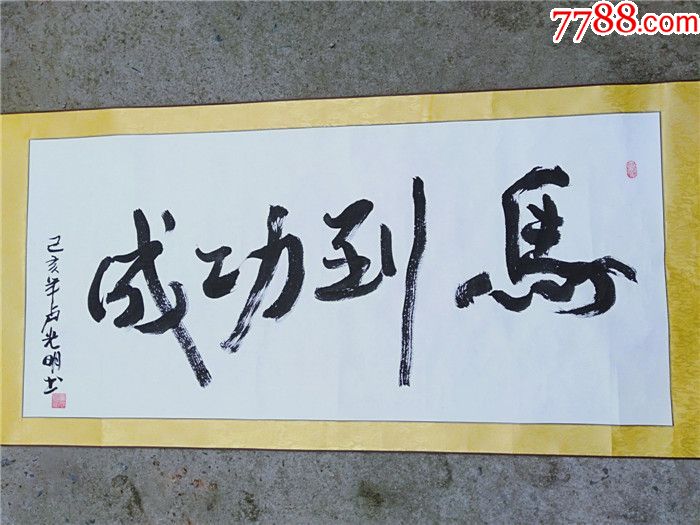 7788.com
馬到功成
己亥年占光明书